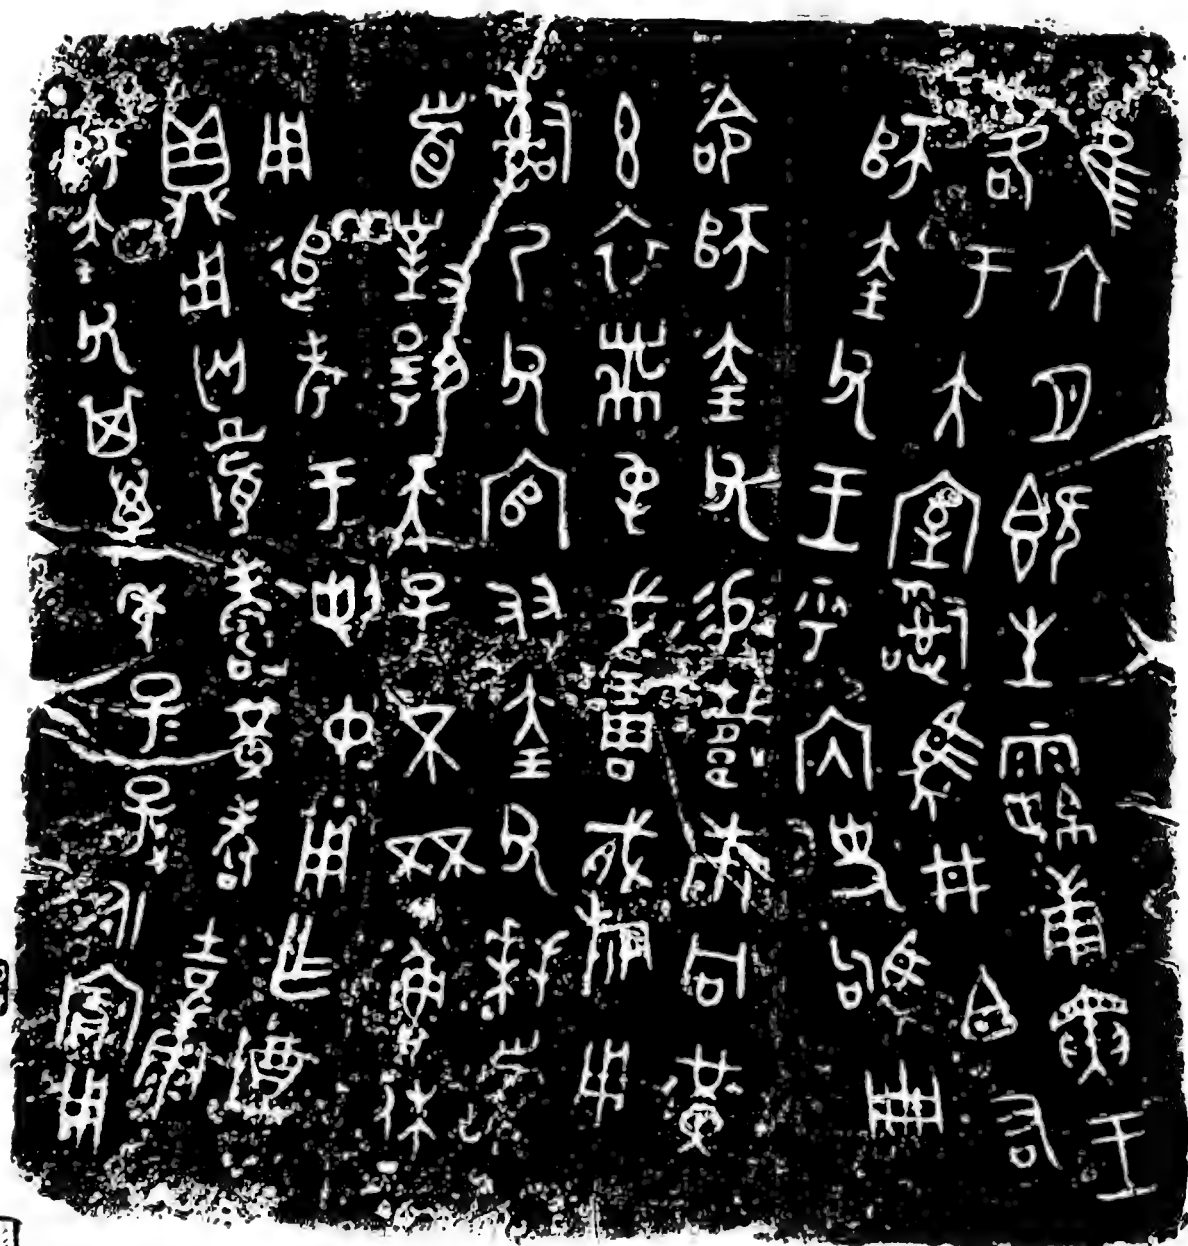 隹六月既生霸庚寅王
各于大室𤔲馬井白右
師奎父王乎內史駒冊
命師奎父易市冋黃
玄衣黹屯戈琱旂用
𤔲乃父官友奎父拜
首對揚天子不魯休
用追考于剌中用乍尊
鼎用匄眉壽黃耇吉康
師奎父其萬年子子孫永寶用